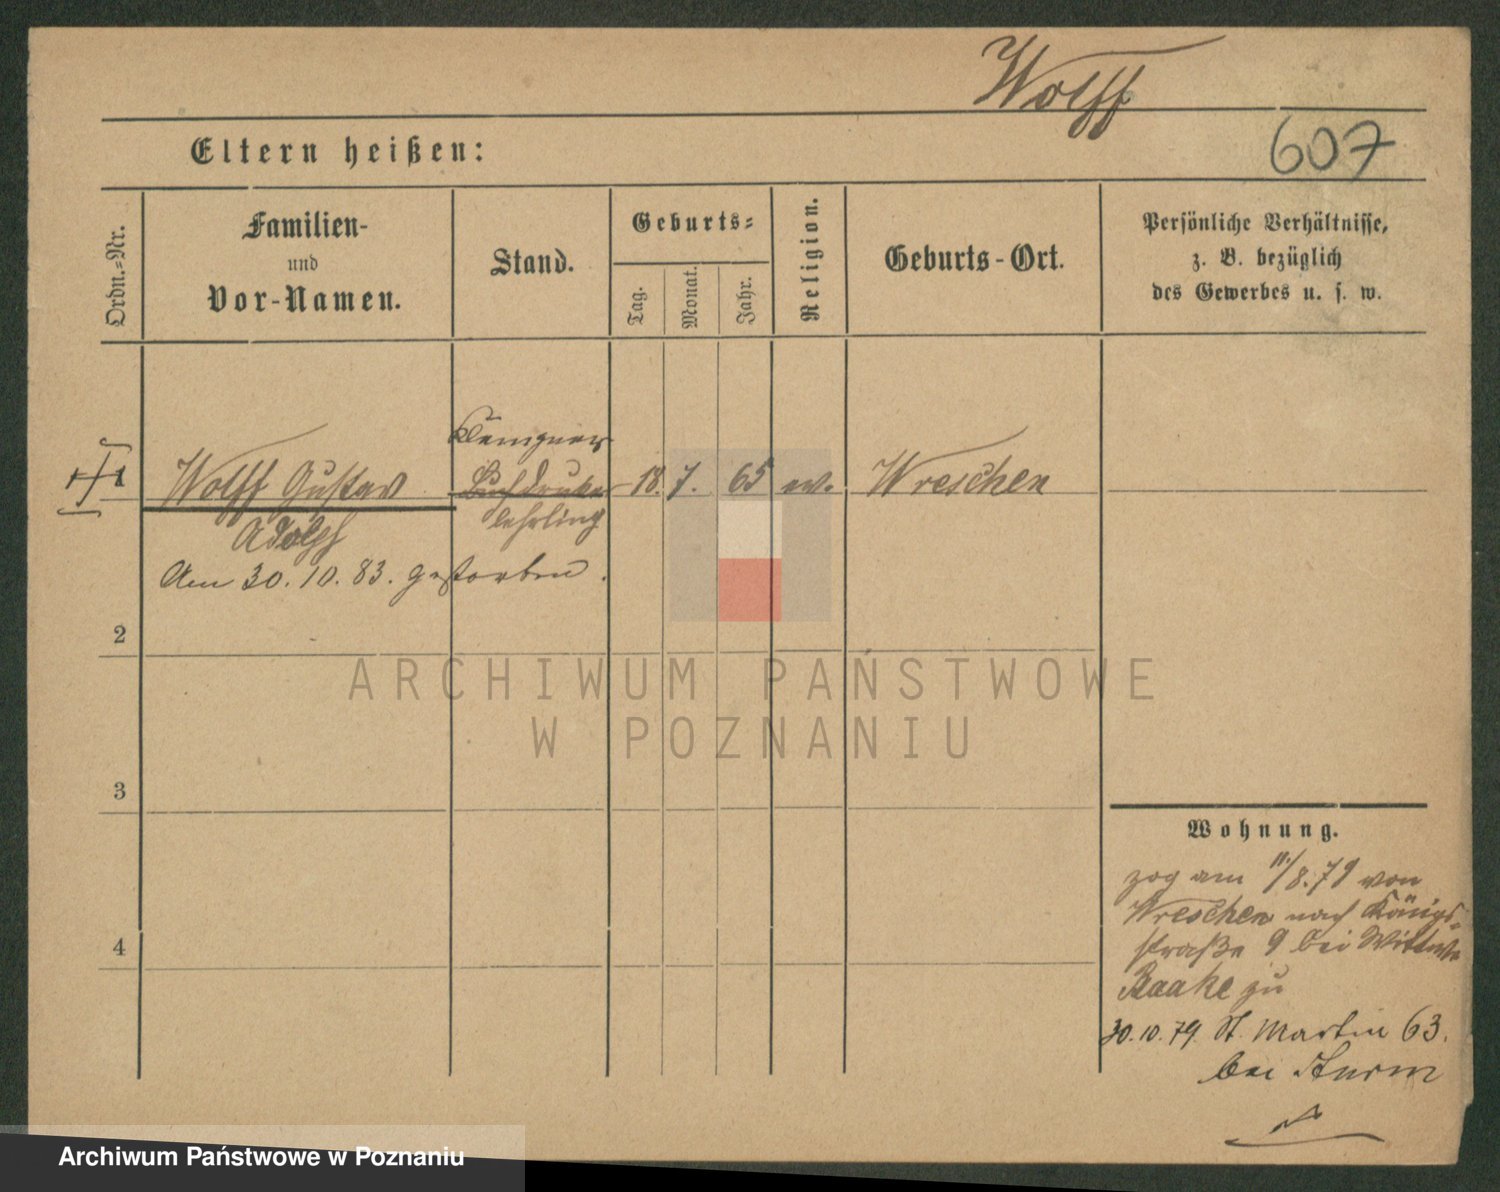 Wolff
607
Eltern heißen:
Ordn.-Nr.
Familien-
und
Vor-Namen.
Stand.
Geburts-
Tag.
Monat.
Jahr.
Religion.
Geburts-Ort.
Persönliche Verhältnisse,
z. B. bezüglich
des Gewerbes u. s. w.
Klempner
1 Wolff Gustav Buchdrucker 18. 7. 65 ev. Wreschen
Adolph lehrling
Am 30. 10. 83. gestorben.
2
ARCHIWUM PAŃSTWOWE
W POZNANIU
3
4
Wohnung.
zog am 11./8.79 von
Wreschen nach Königs-
straße 9 bei Wittwe
Raake zu
30.10.79. St. Martin 63.
bei Sturm
Archiwum Państwowe w Poznaniu